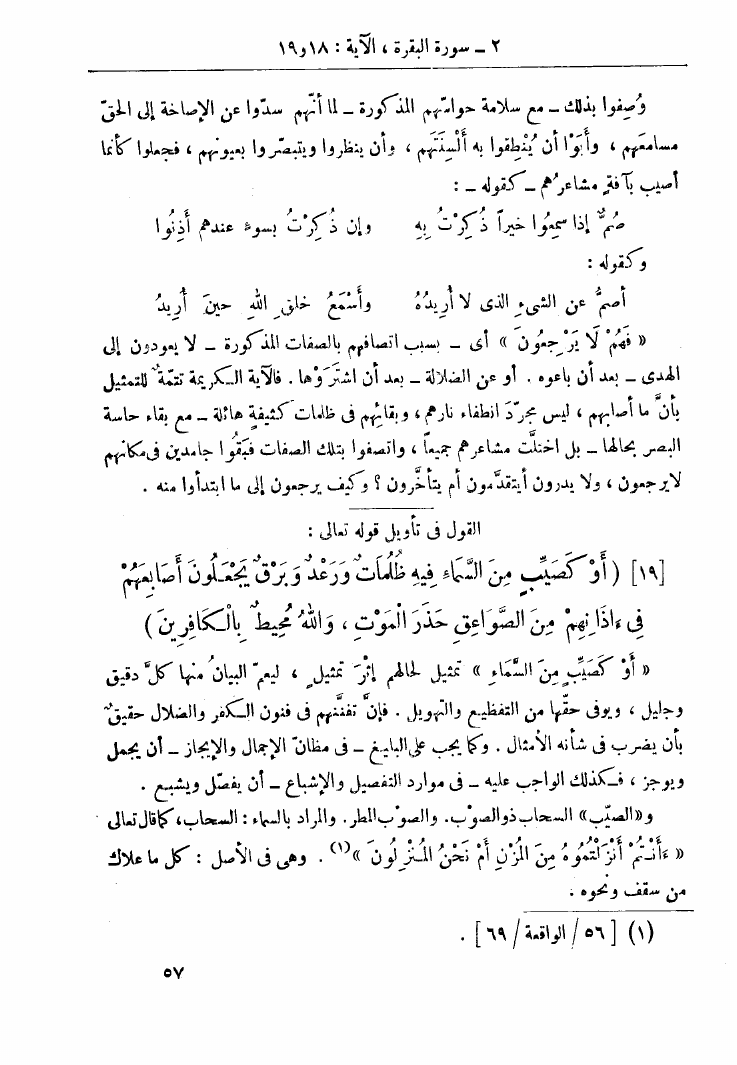 ٢ ــ سورة البقرة ، الآية : ١٨ و١٩
وُصِفوا بذلك ــ مع سلامة حواسّهم المذكورة ــ لما أنّهم سدّوا عن الإصاخة إلى الحقّ
مسامعَهم ، وأَبَوْا أن يُنْطِقوا به أَلْسِنَتَهم ، وأن ينظروا ويتبصّروا بعيونهم ، فجعلوا كأنما
أصيب بآفةٍ مشاعرُهم ــ كقوله ــ :
صُمٌّ إذا سمِعُوا خيراً ذُكِرْتُ بِهِ وإن ذُكِرْتُ بسوءٍ عندهم أَذِنُوا
وكقوله :
أصمُّ عن الشىءِ الذى لا أُرِيدُهُ وأَسْمَعُ خلقِ اللهِ حينَ أُرِيدُ
« فَهُمْ لَا يَرْجِعُونَ » أى ــ بسبب اتصافهم بالصفات المذكورة ــ لا يعودون إلى
الهدى ــ بعد أن باعوه . أو عن الضلالة ــ بعد أن اشتَرَوْها . فالآية الكريمة تتمّةٌ للتمثيل
بأنّ ما أصابهم ، ليس مجرّدَ انطفاء نارهم ، وبقائِهم فى ظلمات كثيفةٍ هائلة ــ مع بقاء حاسة
البصر بحالها ــ بل اختلَّت مشاعرهم جميعاً ، واتصفوا بتلك الصفات فبَقُوا جامدين فى مكانهم
لا يرجعون ، ولا يدرون أيتقدَّمون أم يتأخَّرون ؟ وكيف يرجعون إلى ما ابتدأوا منه .
القول فى تأويل قوله تعالى :
[١٩] ( أَوْ كَصَيِّبٍ مِنَ السَّمَاءِ فِيهِ ظُلُمَاتٌ وَرَعْدٌ وَبَرْقٌ يَجْعَلُونَ أَصَابِعَهُمْ
فِى ءَاذَانِهِمْ مِنَ الصَّوَاعِقِ حَذَرَ الْمَوْتِ ، وَاللهُ مُحِيطٌ بِالْكَافِرِينَ )
« أَوْ كَصَيِّبٍ مِنَ السَّمَاءِ » تمثيل لحالهم إثْرَ تمثيلٍ ، ليعمّ البيانُ منها كلَّ دقيق
وجليل ، ويوفى حقّها من التفظيع والتهويل . فإنَّ تفنّنهم فى فنون الكفر والضلال حقيقٌ
بأن يضرب فى شأنه الأمثال . وكما يجب على البليغ ــ فى مظانّ الإجمال والإيجاز ــ أن يجمل
ويوجز ، فكذلك الواجب عليه ــ فى موارد التفصيل والإشباع ــ أن يفصّل ويشبع .
و«الصيّب» السحاب ذو الصوْب. والصوْب المطر. والمراد بالسماء : السحاب، كما قال تعالى
« ءَأَنْتُمْ أَنْزَلْتُمُوهُ مِنَ الْمُزْنِ أَمْ نَحْنُ الْمُنْزِلُونَ »(١) . وهى فى الأصل : كل ما علاك
من سقف ونحوه .
(١) [ ٥٦ / الواقعة / ٦٩ ] .
٥٧